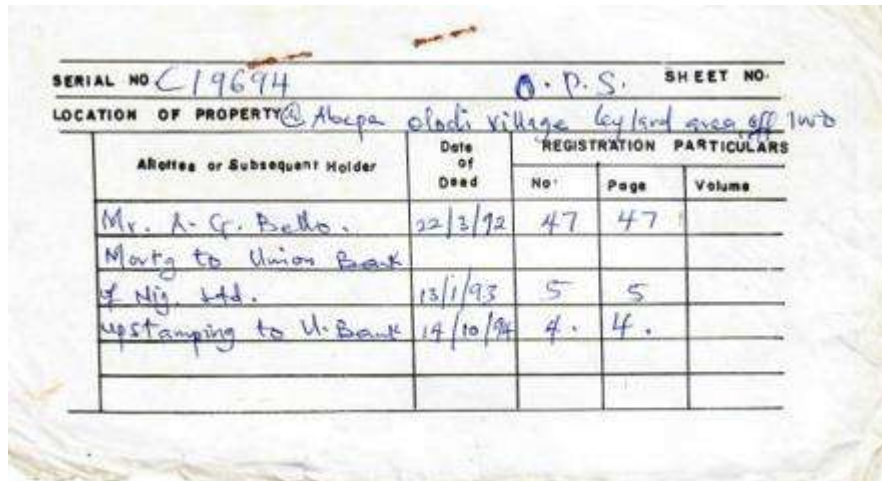 SERIAL NO C19694 O.P.S. SHEET NO.
LOCATION OF PROPERTY @ Abepa olodi village leyland area off Iwo
Allottee or Subsequent Holder Date of Deed REGISTRATION PARTICULARS
No. Page Volume
Mr. A. G. Bello. 22/3/92 47 47
Mortg to Union Bank
of Nig. Ltd. 13/1/93 5 5
upstamping to U. Bank 14/10/94 4. 4.